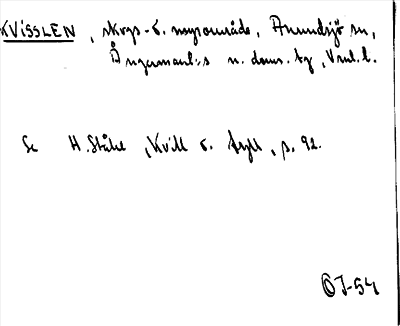 KVISSLEN, skogs- o. myrområde, Anundsjö sn,
Ångermanl:s n. doms. tg, Vnl. l.
Se H. Ståhl, Kvill o. tyll, s. 92.
OJ-54